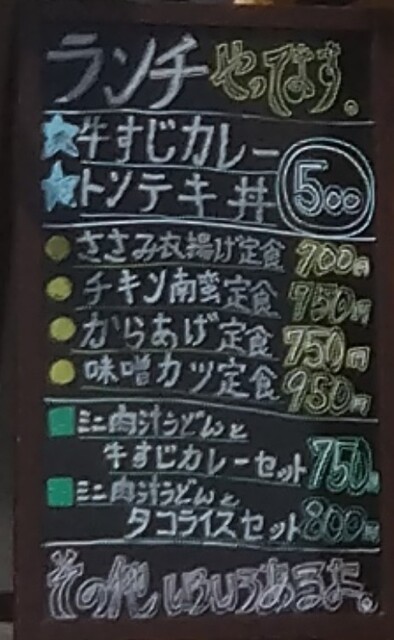 ランチやってます。
★牛すじカレー
★トンテキ丼 500
●ささみ衣揚げ定食 900円
●チキン南蛮定食 750円
●からあげ定食 750円
●味噌カツ定食 950円
■ミニ肉汁うどんと
牛すじカレーセット 750円
■ミニ肉汁うどんと
タコライスセット 800円
その他いろいろあるよ。